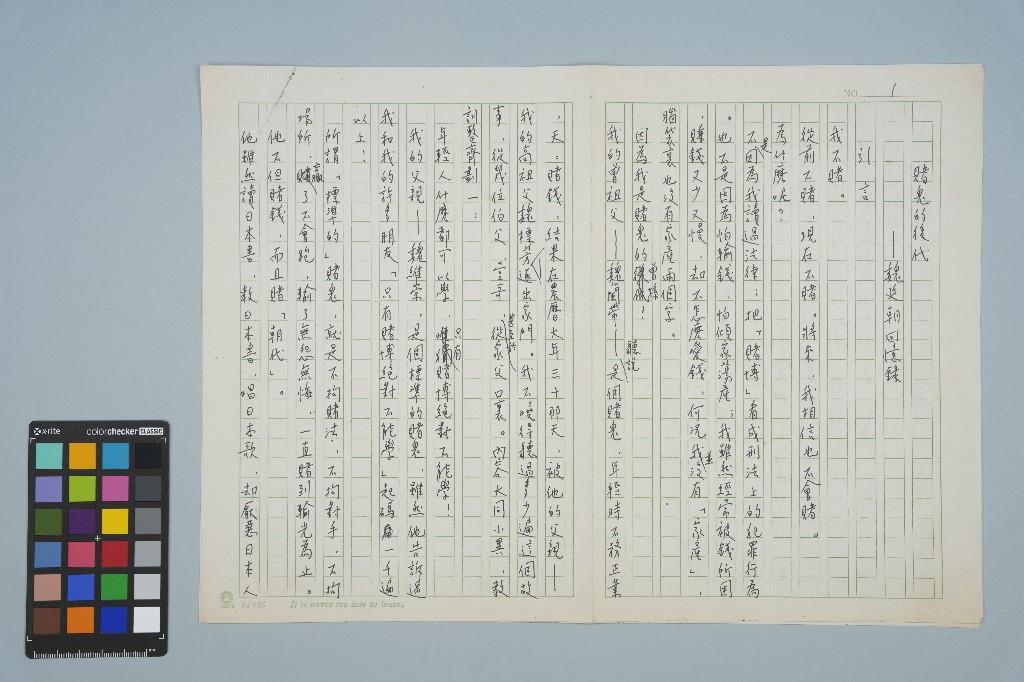 NO. 1
賭鬼的後代
——魏廷朝回憶錄
引言
我不賭。
從前不賭，現在不賭。將來，我相信也不會賭。
為什麼呢？
不是因為我讀過法律；把「賭博」看成刑法上的犯罪行為
。也不是因為怕輸錢，怕傾家蕩產；我雖然經常被錢所困
，賺錢又少又慢，却不怎麼愛錢，何況我並沒有「家產」
腦袋裏也沒有家產兩個字。
因為我是賭鬼的曾孫！
我的曾祖父——魏 帶——聽說是個賭鬼，年輕時不務正業
，天天賭錢，結果在農曆大年三十那天，被他的父親——
我的高祖父魏標芳逐出家門。我不曉得聽過多少遍這個故
事，從幾位伯父、堂哥，甚至於從家父口裏。內容大同小異，教
訓整齊劃一：
年輕人什麼都可以學，只有賭博絕對不能學！
我的父親——魏維崇，是個標準的賭鬼，雖然他告訴過
我和我的許多朋友「只有賭博絕對不能學」起碼一千遍
以上：
所謂「標準的」賭鬼，就是不拘賭法，不拘對手，不拘
場所，贏了不會跑，輸了無怨無悔，一直賭到輸光為止。
他不但賭錢，而且賭「朝代」。
他雖然讀日本書，教日本書，唱日本歌，却厭惡日本人
24×25 It is never too late to learn.
x-rite colorchecker CLASSIC